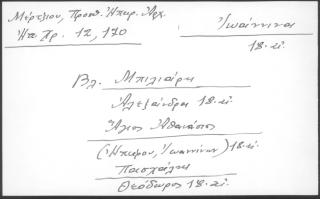 Μέρτζιου, Προσπ. Ηπειρ. Αρχ.
Ηπ. Χρ. 12, 170
Ιωάννινα
18. αἰ.
Βλ. Μπιλιάρη
Αλεξάνδρα 18. αἰ.
Άγιος Αθανάσιος
(Ηπείρου, Ιωαννίνων) 18. αἰ.
Πασχάλη
Θεόδωρος 18. αἰ.